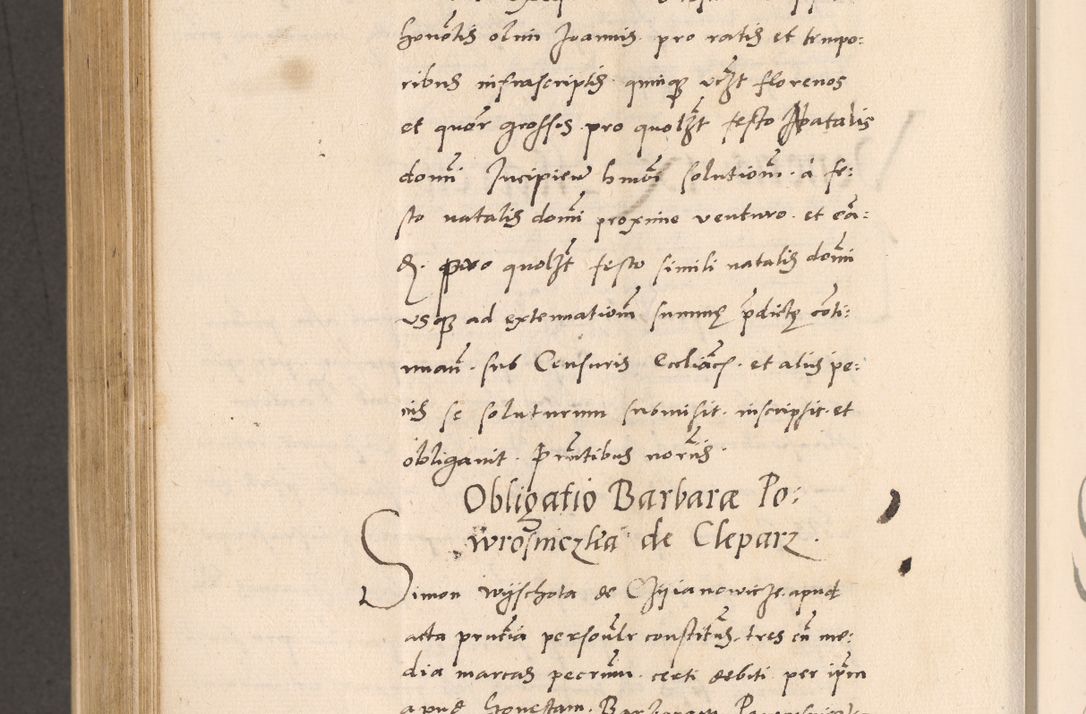 honestis olim Joannis pro ratis et tempo:
ribus infrascriptis quinqꝫ vꝫt florenos
et quor grossos pro quolꝫt festo Natalis
domi Incipien hmoi solutiom a fe:
sto natalis domi proxime venturo et ea:
qꝫ pro quolꝫt festo simili natalis domi
usqꝫ ad extenuatiom summę pdictę coti:
nuan sub Censuris Eccliacs et aliis pe:
nis se soluturum submisit inscripsit et
obligauit pntibus noriis
Obligatio Barbaræ Po:
wrosniczka de Cleparz
Simon Wyschota de apud
acta pntia personlr constitus tres cu me:
dia marcas pecrum certi debiti per ipm
apud honestam Barbaram